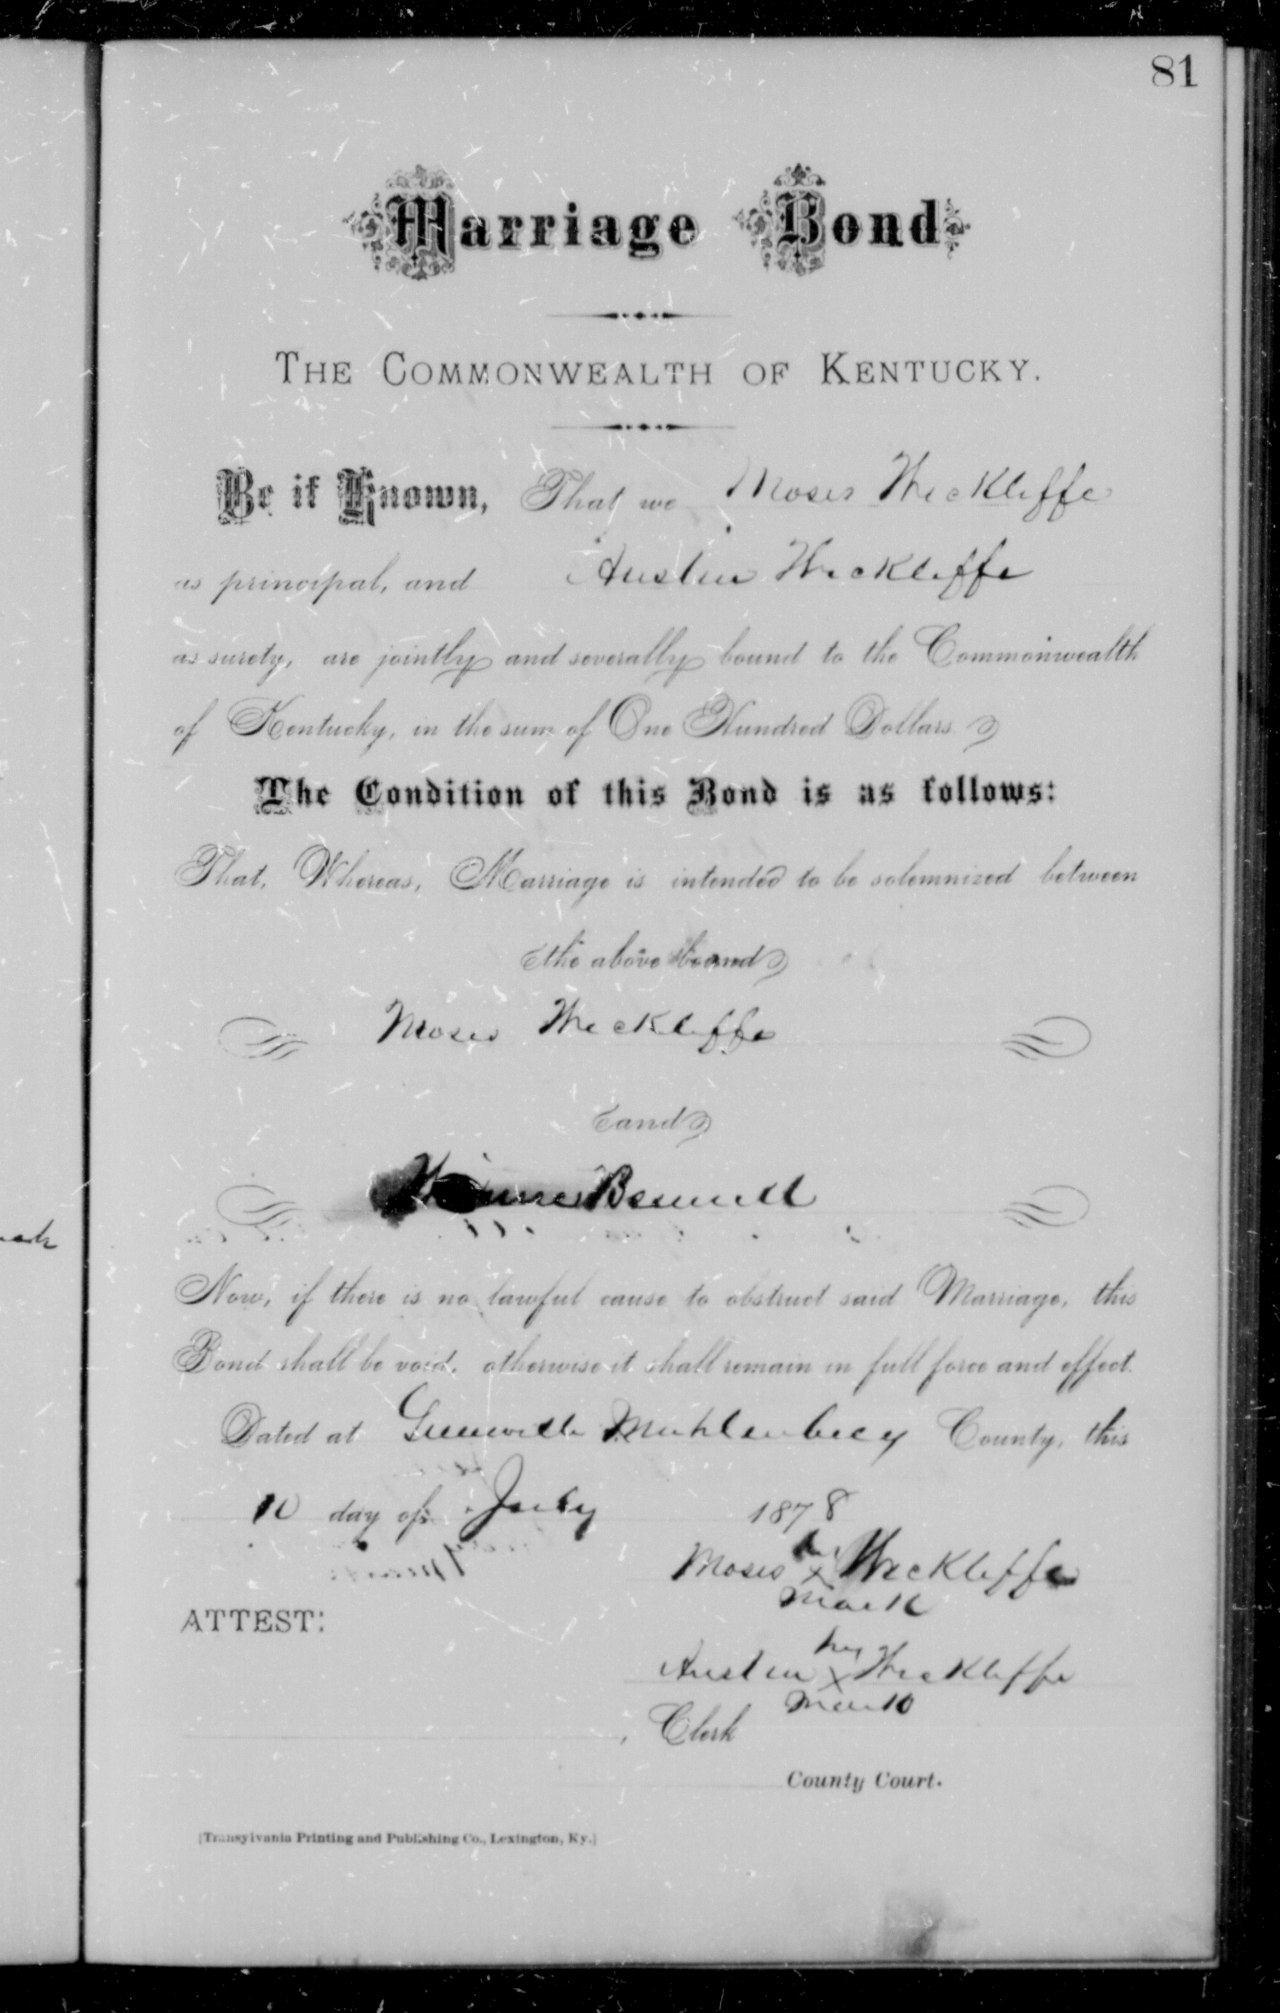 81
Marriage Bond
THE COMMONWEALTH OF KENTUCKY.
Be it Known, That we Moses Wickliffe
as principal, and Austin Wickliffe
as surety, are jointly and severally bound to the Commonwealth
of Kentucky, in the sum of One Hundred Dollars.
The Condition of this Bond is as follows:
That, Whereas, Marriage is intended to be solemnized between
the above bound
Moses Wickliffe
and
Bennett
Now, if there is no lawful cause to obstruct said Marriage, this
Bond shall be void, otherwise it shall remain in full force and effect.
Dated at Greenville Muhlenberg County, this
10 day of July 1878
his
Moses X Wickliffe
mark
ATTEST:
his
Austin X Wickliffe
mark
, Clerk
County Court.
[Transylvania Printing and Publishing Co., Lexington, Ky.]